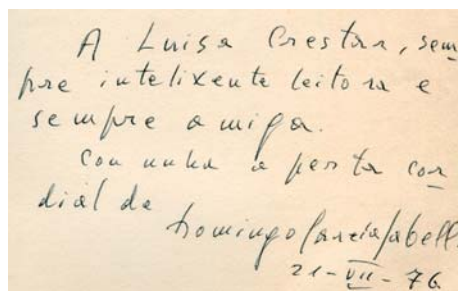 A Luisa Crestar, sem
pre intelixente leitora e
sempre amiga.
Con unha aperta cor
dial de
Domingo García-Sabell.
21-VII-76